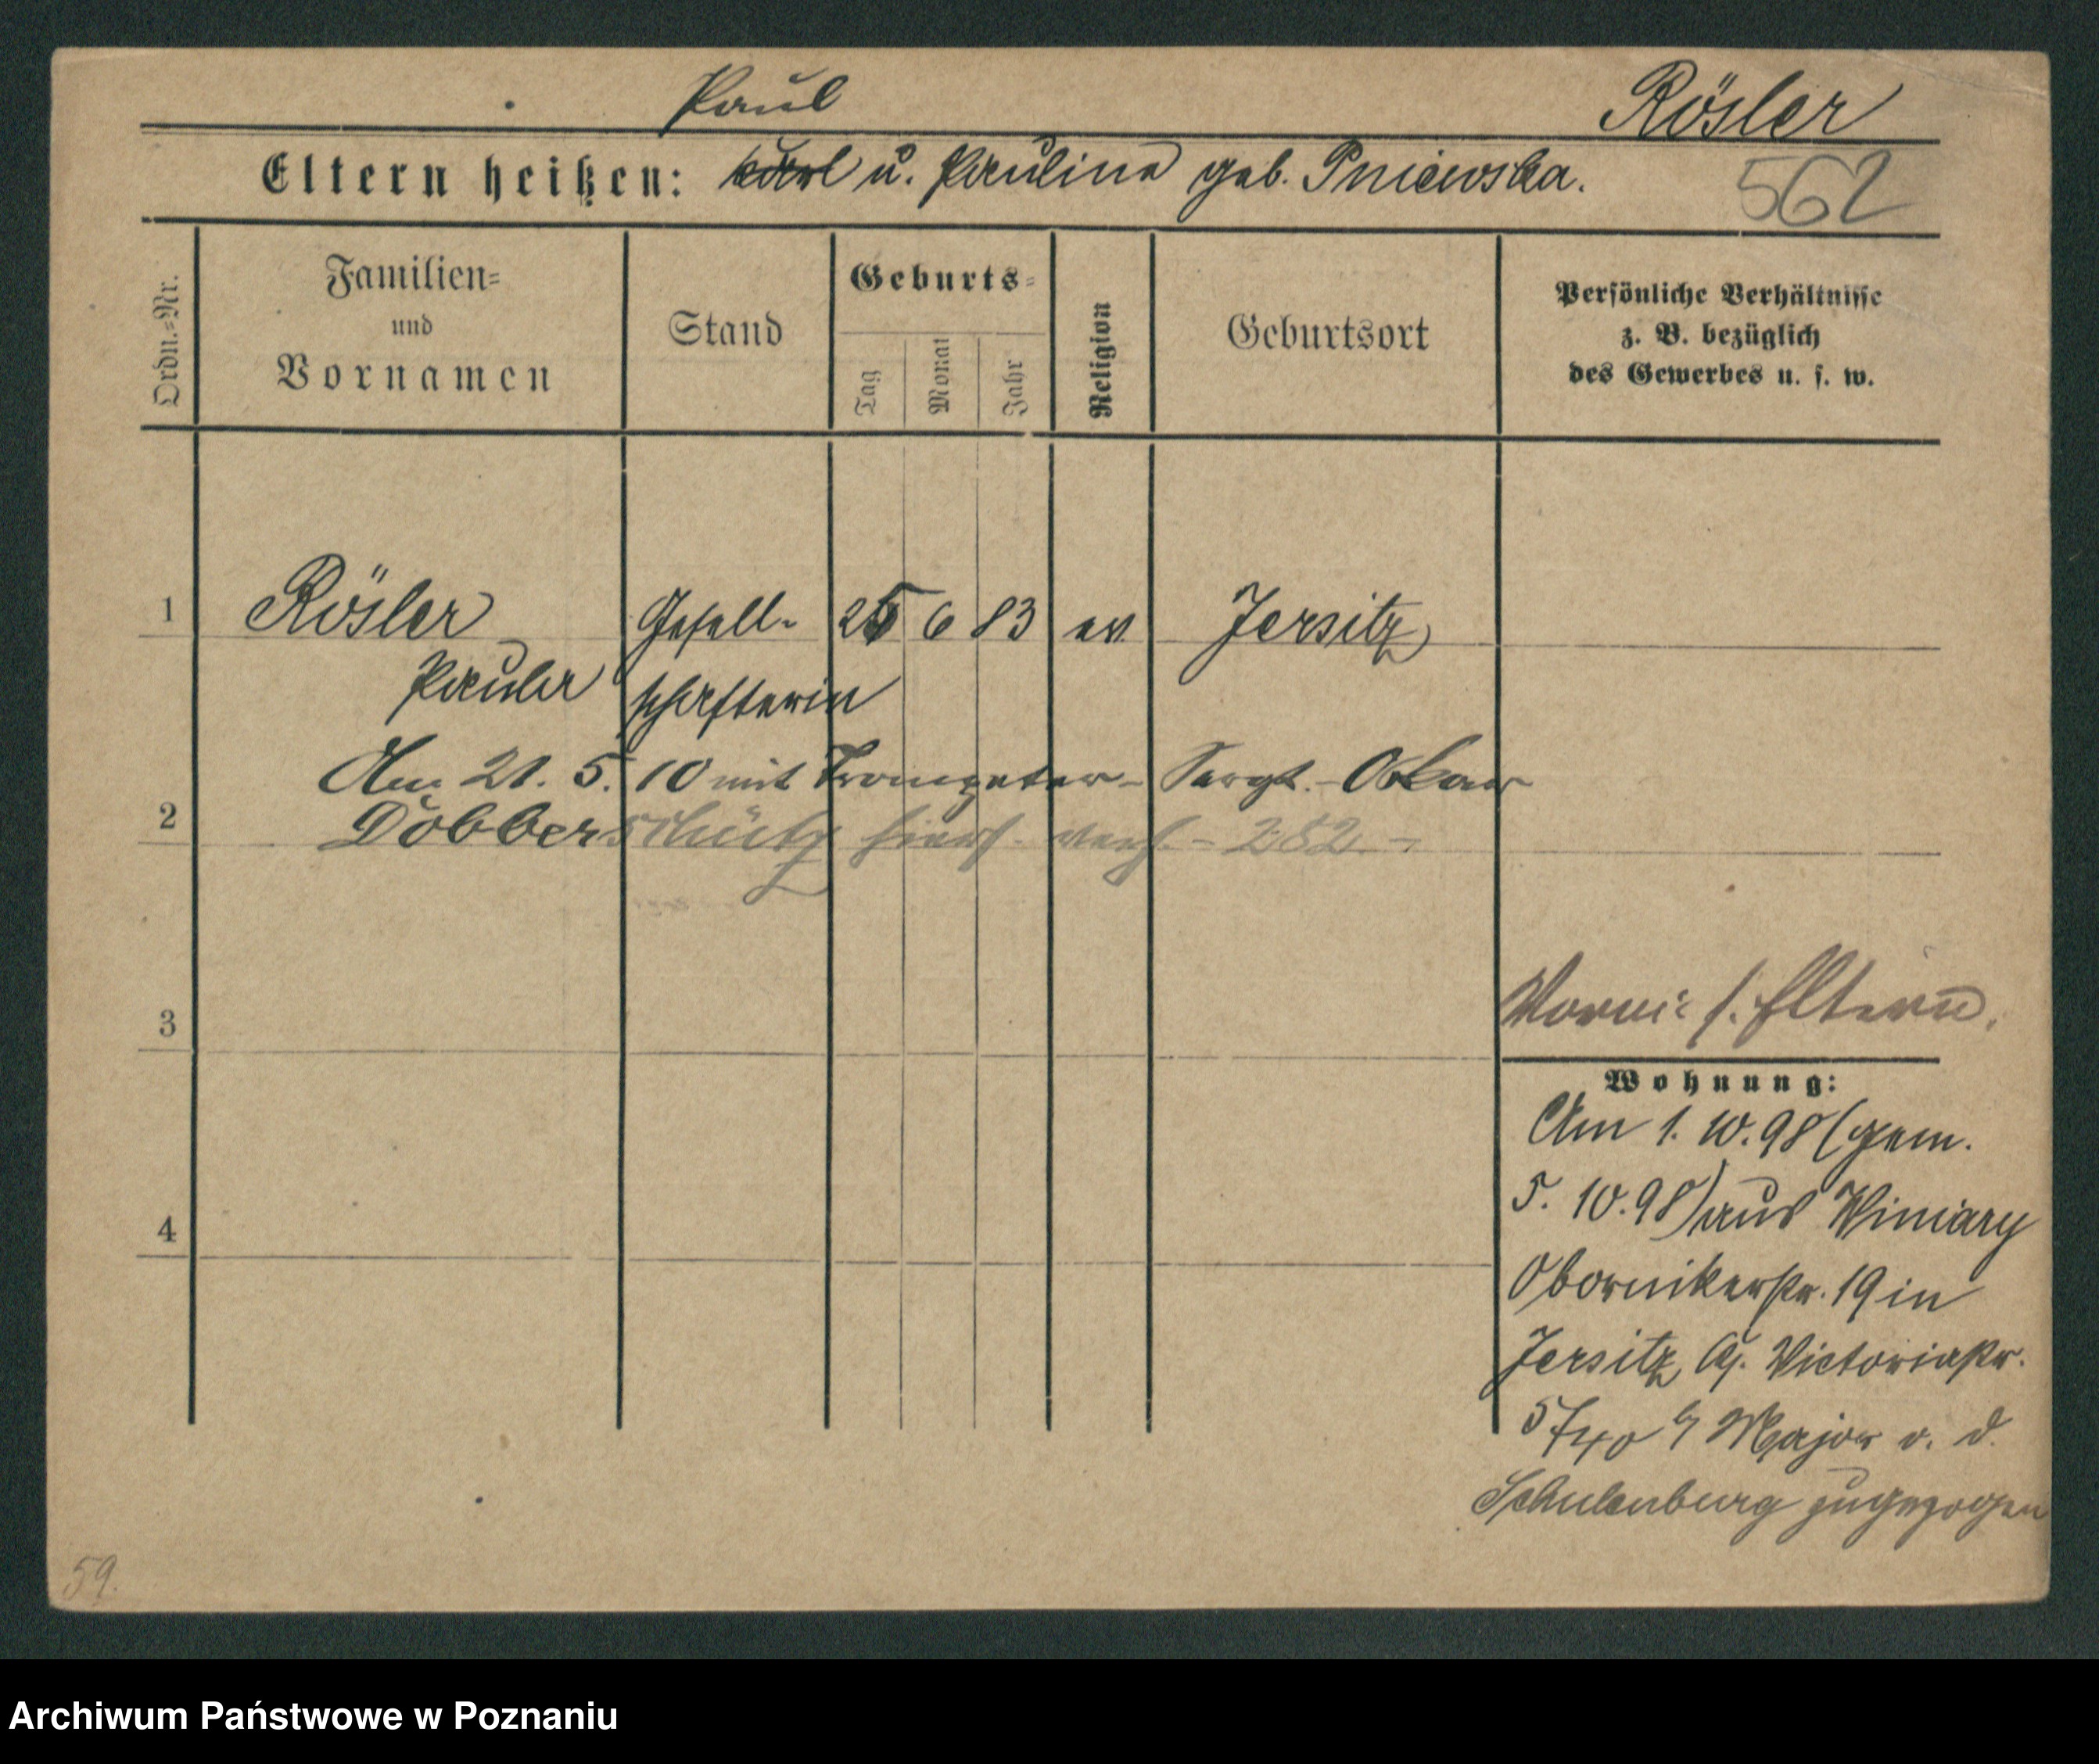 Paul
Rösler
Eltern heißen: Karl u. Pauline geb. Pniewska.
562
Ordn.=Nr.
Familien=
und
Vornamen
Stand
Geburts=
Tag
Monat
Jahr
Religion
Geburtsort
Persönliche Verhältnisse
z. B. bezüglich
des Gewerbes u. s. w.
1
Rösler
Gesell-
25 6 83 ev. Jersitz
Paula
schafterin
Am 21. 5. 10 mit Trompeter- Sergt. - Oskar
2
Dobberschütz hiers. verh. - 252. -
3
Vorni: s. Eltern.
Wohnung:
Am 1. 10. 98 (gem.
5. 10. 98) aus Winiary
4
Obornikerstr. 19 in
Jersitz, Victoriastr.
5/40 Major v. d.
Schulenburg zugezogen
59.
Archiwum Państwowe w Poznaniu